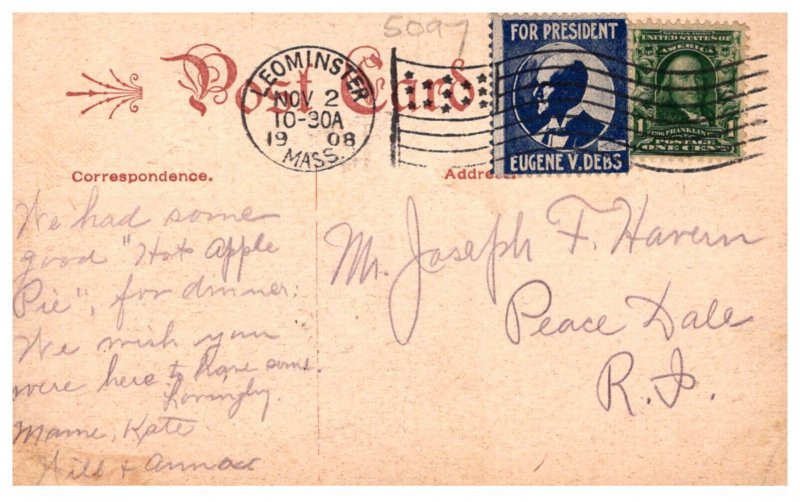 5097
Post Card
LEOMINSTER
NOV 2
10-30A
19 08
MASS.
FOR PRESIDENT
EUGENE V. DEBS
SERIES 1902
UNITED STATES OF
AMERICA
FRANKLIN
1 1
POSTAGE
ONE CENT
Correspondence.
Address.
We had some
good "Hot Apple
Pie", for dinner.
We wish you
were here to have some.
Lovingly.
Mame, Kate
Will + Anna
Mr. Joseph F. Havern
Peace Dale
R.I.